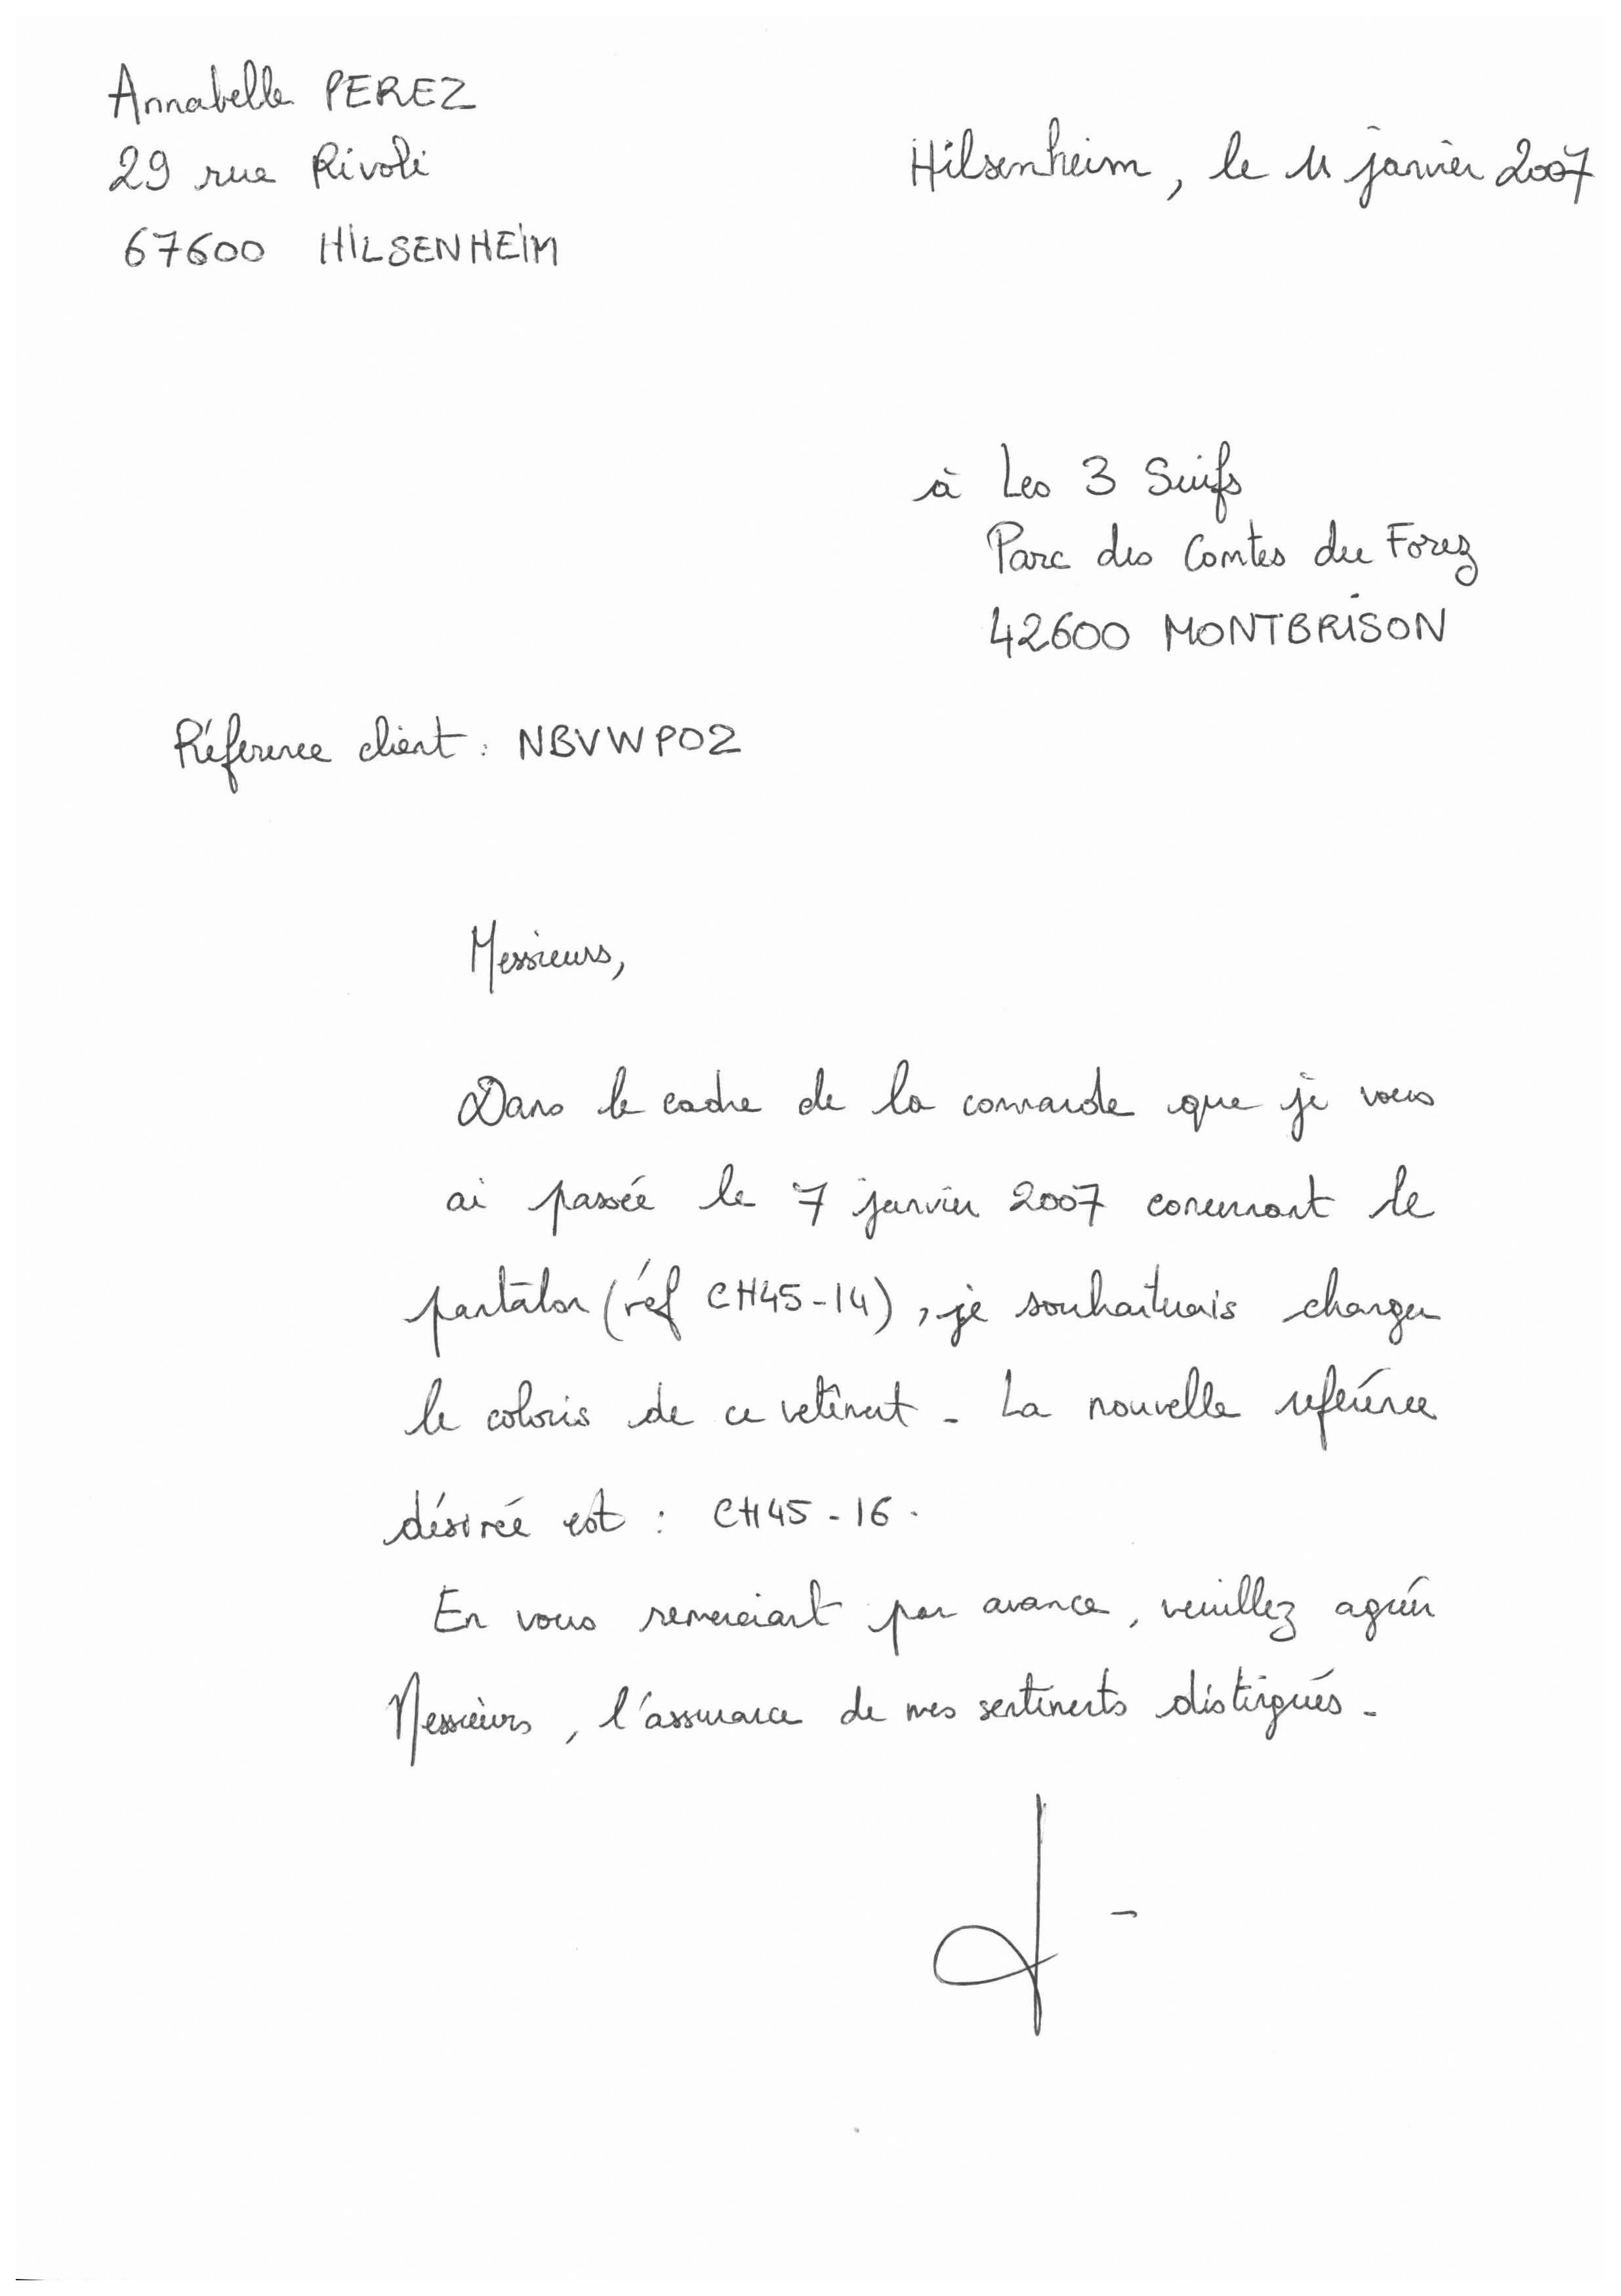 Annabelle PEREZ
29 rue Rivoli
67600 HILSENHEIM
Hilsenheim, le 11 janvier 2007
à Les 3 Suifs
Parc des Comtes du Forez
42600 MONTBRISON
Réference client : NBVWP02
Messieurs,
Dans le cadre de la commande que je vous
ai passée le 7 janvier 2007 concernant le
pantalon (réf CH45-14), je souhaiterais changer
le coloris de ce vetêment. La nouvelle reférence
désirée est : CH45-16.
En vous remerciant par avance, veuillez agréer
Messieurs, l'assurance de mes sentiments distingués.